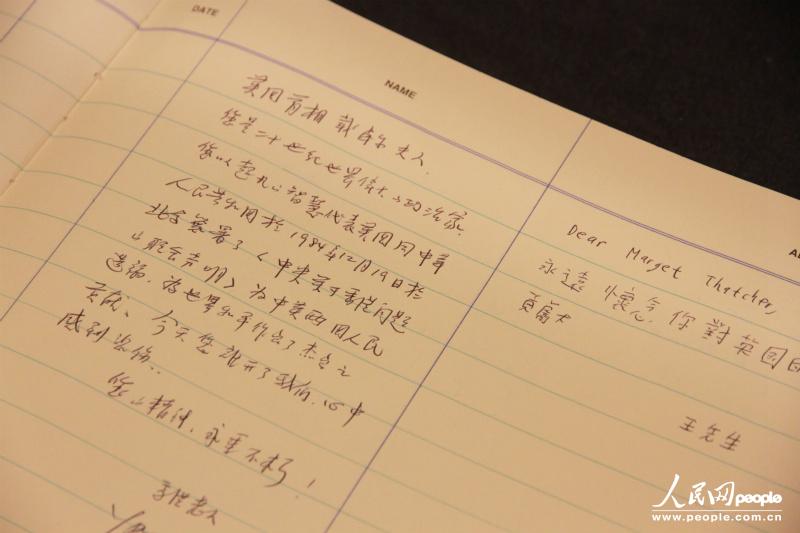 DATE
NAME
英国首相戴卓尔夫人.
您是二十世纪世界伟大的政治家.
您以超凡的智慧代表英国同中华
人民共和国於1984年12月19日於
北京签署了《中英关于香港问题
的联合声明》为中英两国人民
造福.为世界和平作出了杰出之
贡献、今天您离开了我们.心中
感到悲伤..
您的精神,永垂不朽!
香港老人
Dear Marget Thatcher,
永遠懷念.你對英国
貢獻大
王先生
人民网people
www.people.com.cn